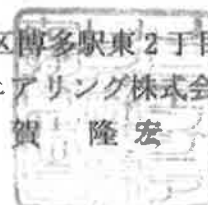 区博多駅東2丁目
ニアリング株式会
賀 隆宏